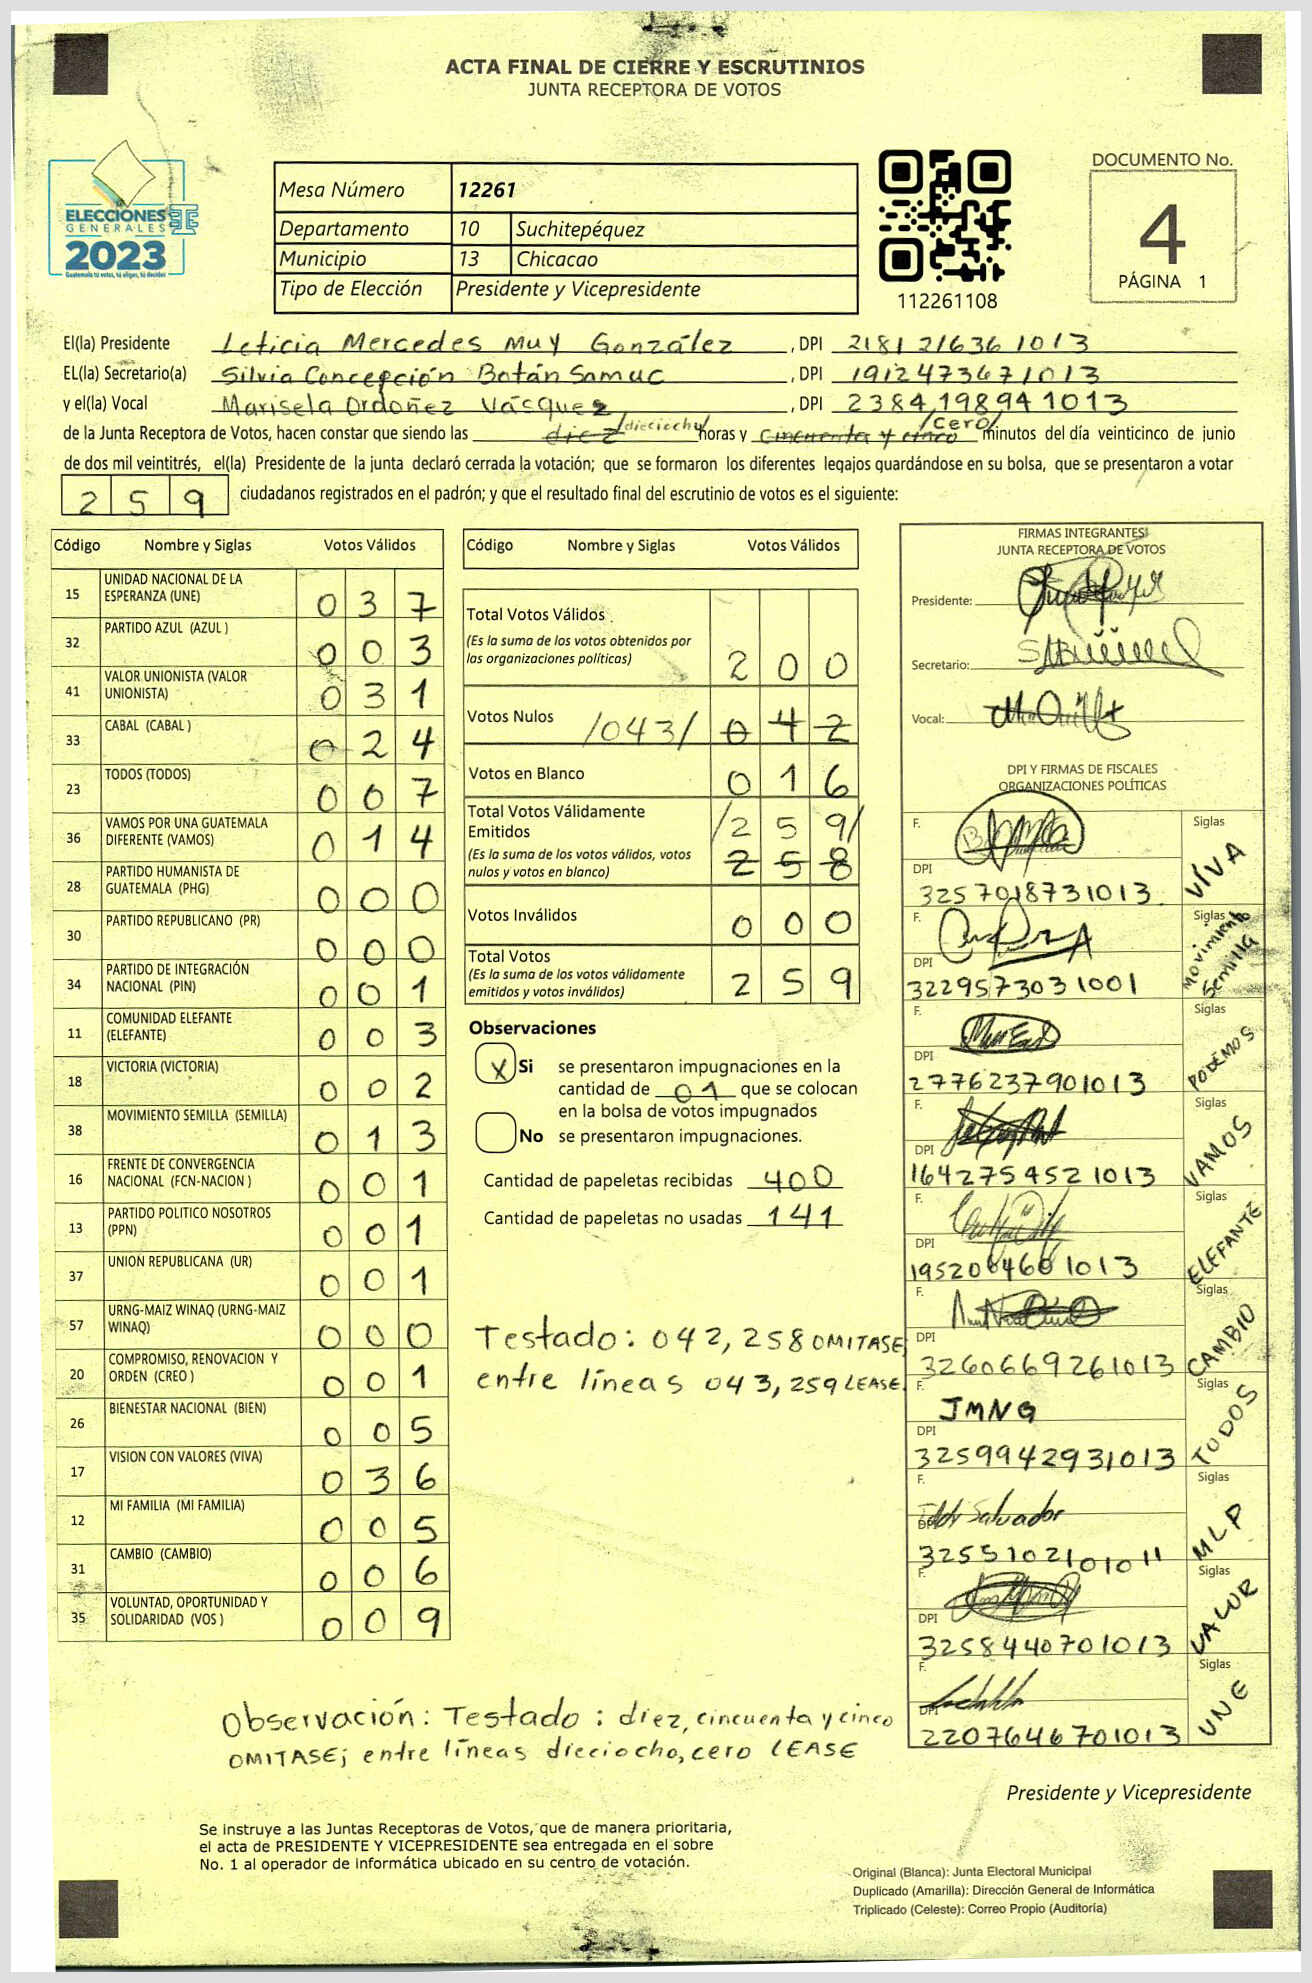 ACTA FINAL DE CIERRE Y ESCRUTINIOS
JUNTA RECEPTORA DE VOTOS
ELECCIONES
GENERALES
2023
Guatemala tú votas, tú eliges, tú decides
Mesa Número 12261
Departamento 10 Suchitepéquez
Municipio 13 Chicacao
Tipo de Elección Presidente y Vicepresidente
112261108
DOCUMENTO No.
4
PÁGINA 1
El(la) Presidente Leticia Mercedes Muy González, DPI 2181216361013
EL(la) Secretario(a) Silvia Concepción Batán Samuc, DPI 1912473671013
y el(la) Vocal Marisela Ordoñez Vásquez, DPI 2384198941013
de la Junta Receptora de Votos, hacen constar que siendo las diez /dieciocho/ horas y cincuenta y cinco /cero/ minutos del día veinticinco de junio
de dos mil veintitrés, el(la) Presidente de la junta declaró cerrada la votación; que se formaron los diferentes legajos guardándose en su bolsa, que se presentaron a votar
259 ciudadanos registrados en el padrón; y que el resultado final del escrutinio de votos es el siguiente:
Código Nombre y Siglas Votos Válidos
15 UNIDAD NACIONAL DE LA ESPERANZA (UNE) 037
32 PARTIDO AZUL (AZUL ) 003
41 VALOR UNIONISTA (VALOR UNIONISTA) 031
33 CABAL (CABAL ) 024
23 TODOS (TODOS) 007
36 VAMOS POR UNA GUATEMALA DIFERENTE (VAMOS) 014
28 PARTIDO HUMANISTA DE GUATEMALA (PHG) 000
30 PARTIDO REPUBLICANO (PR) 000
34 PARTIDO DE INTEGRACIÓN NACIONAL (PIN) 001
11 COMUNIDAD ELEFANTE (ELEFANTE) 003
18 VICTORIA (VICTORIA) 002
38 MOVIMIENTO SEMILLA (SEMILLA) 013
16 FRENTE DE CONVERGENCIA NACIONAL (FCN-NACION ) 001
13 PARTIDO POLITICO NOSOTROS (PPN) 001
37 UNION REPUBLICANA (UR) 001
57 URNG-MAIZ WINAQ (URNG-MAIZ WINAQ) 000
20 COMPROMISO, RENOVACION Y ORDEN (CREO ) 001
26 BIENESTAR NACIONAL (BIEN) 005
17 VISION CON VALORES (VIVA) 036
12 MI FAMILIA (MI FAMILIA) 005
31 CAMBIO (CAMBIO) 006
35 VOLUNTAD, OPORTUNIDAD Y SOLIDARIDAD (VOS ) 009
Código Nombre y Siglas Votos Válidos
Total Votos Válidos
(Es la suma de los votos obtenidos por
las organizaciones políticas) 200
Votos Nulos /043/ 042
Votos en Blanco 016
Total Votos Válidamente
Emitidos /259/
(Es la suma de los votos válidos, votos
nulos y votos en blanco) 258
Votos Inválidos 000
Total Votos
(Es la suma de los votos válidamente
emitidos y votos inválidos) 259
Observaciones
X Si se presentaron impugnaciones en la
cantidad de 01 que se colocan
en la bolsa de votos impugnados
No se presentaron impugnaciones.
Cantidad de papeletas recibidas 400
Cantidad de papeletas no usadas 141
Testado: 042, 258 OMITASE,
entre líneas 043, 259 LEASE.
FIRMAS INTEGRANTES
JUNTA RECEPTORA DE VOTOS
Presidente:
Secretario:
Vocal:
DPI Y FIRMAS DE FISCALES
ORGANIZACIONES POLÍTICAS
F. Siglas VIVA
DPI 3257018731013
F. Siglas Movimiento Semilla
DPI 3229573031001
F. Siglas PODEMOS
DPI 2776237901013
F. Siglas VAMOS
DPI 1642754521013
F. Siglas ELEFANTE
DPI 1952004601013
F. Siglas CAMBIO
DPI 3260669261013
F. JMNG Siglas TODOS
DPI 3259942931013
F. Salvador Siglas MLP
DPI 3255102101011
F. Siglas VALOR
DPI 3258440701013
F. Siglas UNE
DPI 2207646701013
Observación: Testado: diez, cincuenta y cinco
OMITASE; entre líneas dieciocho, cero LEASE
Presidente y Vicepresidente
Se instruye a las Juntas Receptoras de Votos, que de manera prioritaria,
el acta de PRESIDENTE Y VICEPRESIDENTE sea entregada en el sobre
No. 1 al operador de informática ubicado en su centro de votación.
Original (Blanca): Junta Electoral Municipal
Duplicado (Amarilla): Dirección General de Informática
Triplicado (Celeste): Correo Propio (Auditoría)